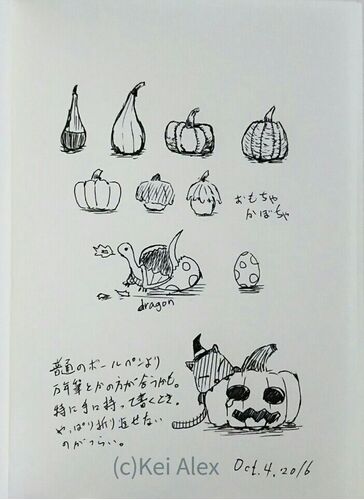 おもちゃ
かぼちゃ
dragon
普通のボールペンより
万年筆とかの方が合うかも。
特に手に持って書くとき。
やっぱり折り返せない
のがつらい。
(c)Kei Alex
Oct.4.2016